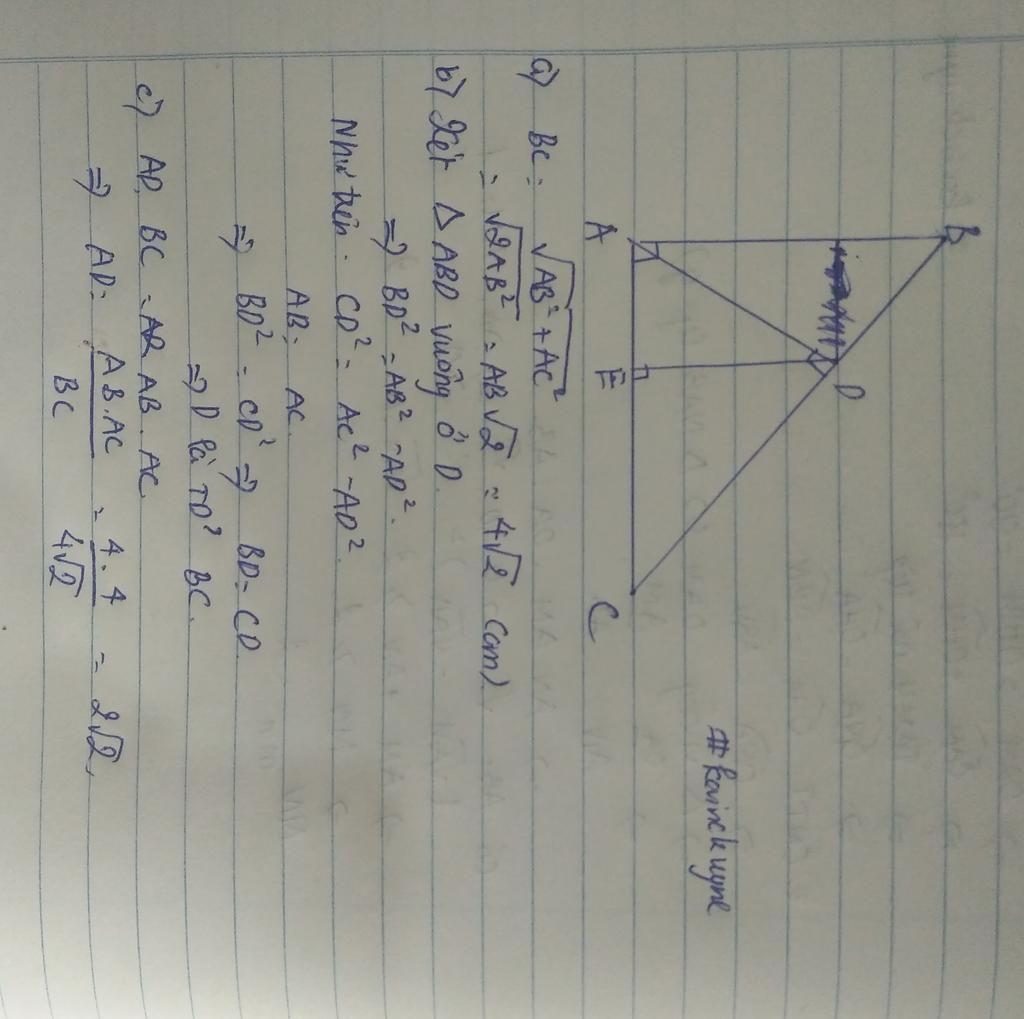 #kainckuyne
B
D
A
E
C
a) BC = √AB² + AC²
= √2AB² = AB√2 = 4√2 (cm).
b) Xét Δ ABD vuông ở D.
⇒ BD² = AB² - AD².
Như trên. CD² = AC² - AD².
AB = AC.
⇒ BD² = CD² ⇒ BD = CD
⇒ D là TĐ BC.
c) AD. BC = AB. AC
⇒ AD = AB.AC / BC = 4.4 / 4√2 = 2√2,